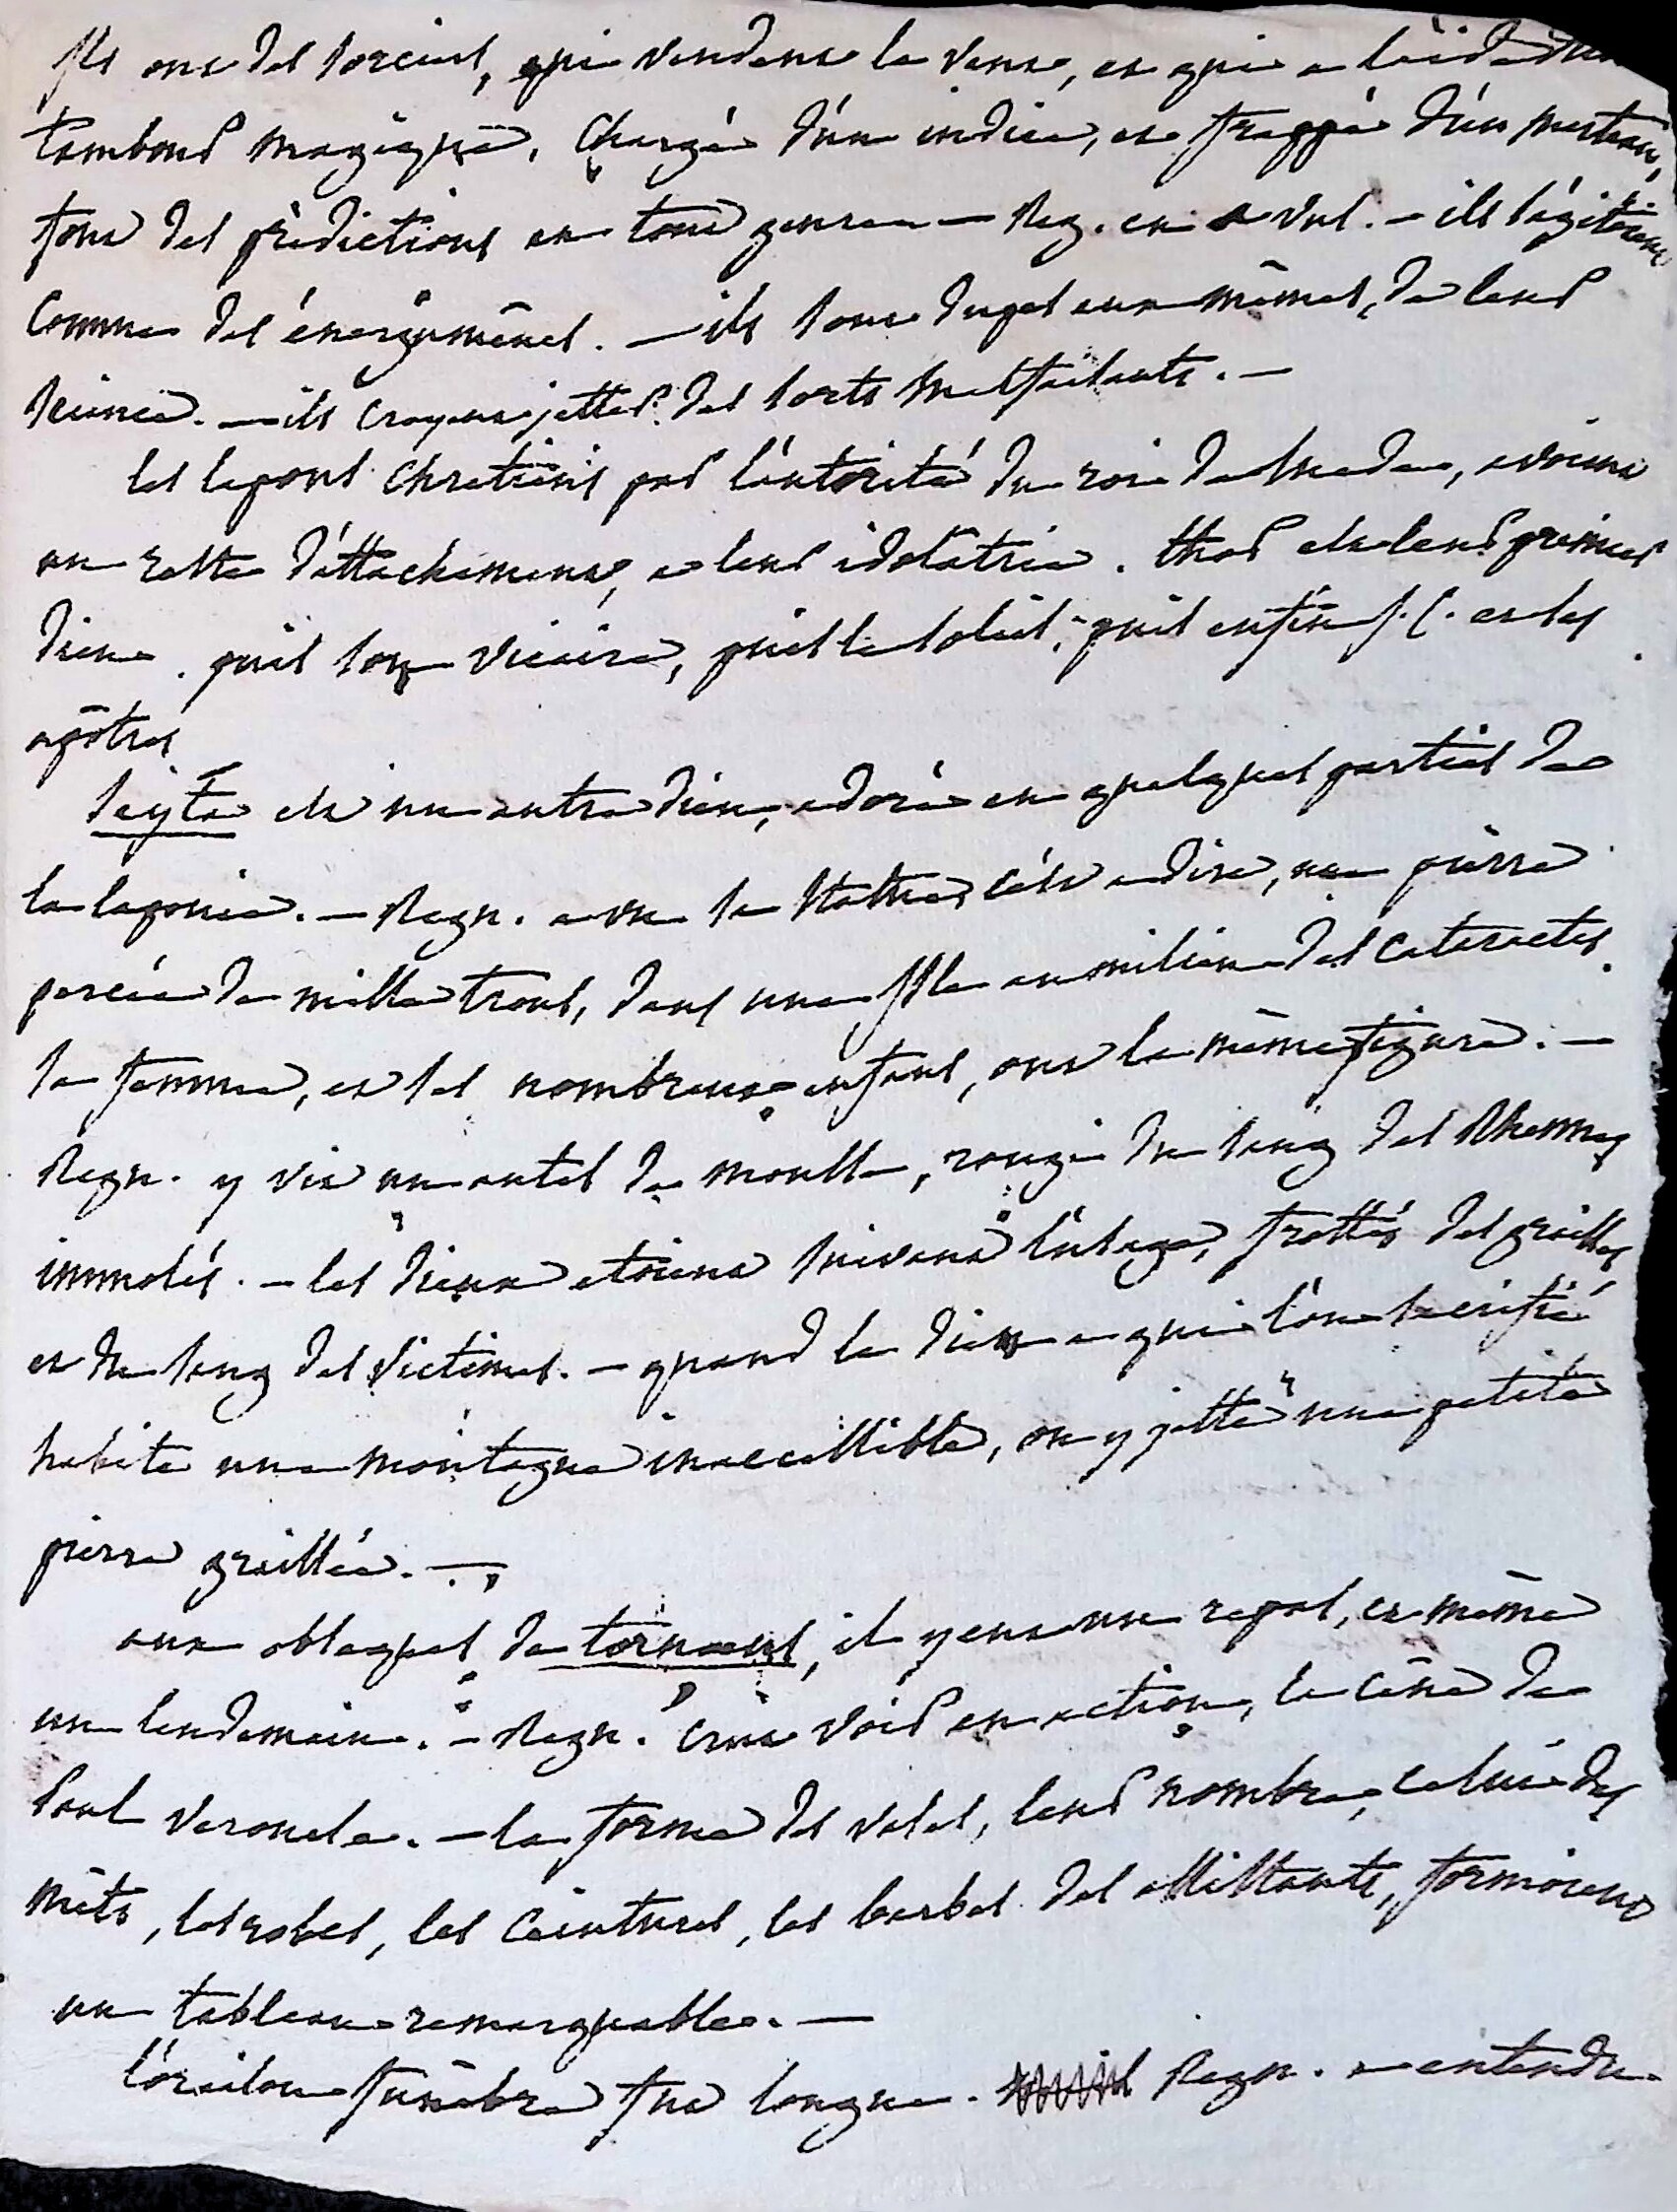 Ils ont des sorciers, qui vendent le vent, et qui a l'aide d'un
tambour magique, chargé d'un indice, et frappé d'un marteau,
font des prédictions en tout genre — Reg. en a vu. — ils s'agitoient
comme des énergumènes. — ils sont dupes eux mêmes, de leur
science. — ils croyent jetter des sorts malfaisants. —
les lapons chretiens par l'autorité du roi de Suede, avoient
un reste d'attachement, a leur idolatrie. thor est leur premier
dieu. puis son vicaire, puis le soleil, puis enfin J. C. et les
apôtres
Seyta est un autre dieu, adoré en quelques parties de
la laponie. — Regn. a vu sa statue, c'est a dire, une pierre
percée de mille trous, dans une Isle au milieu des cataractes.
sa femme, et ses nombreux enfans, ont la même figure. —
Regn. y vit un autel de mousse, rougi du sang des Rhennes
immolés. — les dieux etoient suivant l'usage, frottés des graisses
et du sang des victimes. — quand le dieu a qui l'on sacrifie
habite une montagne inaccessible, on y jette une petite
pierre graissée. —
aux obseques de tornaeus, il y eut un repas, et même
un lendemain. — Regn. crut voir en action, la cène de
Paul Veronese. — la forme des vases, leur nombre, celui des
mêts, les robes, les ceintures, les barbes des assistants, formoient
un tableau remarquable. —
l'oraison funèbre fut longue. Regn. a entendu